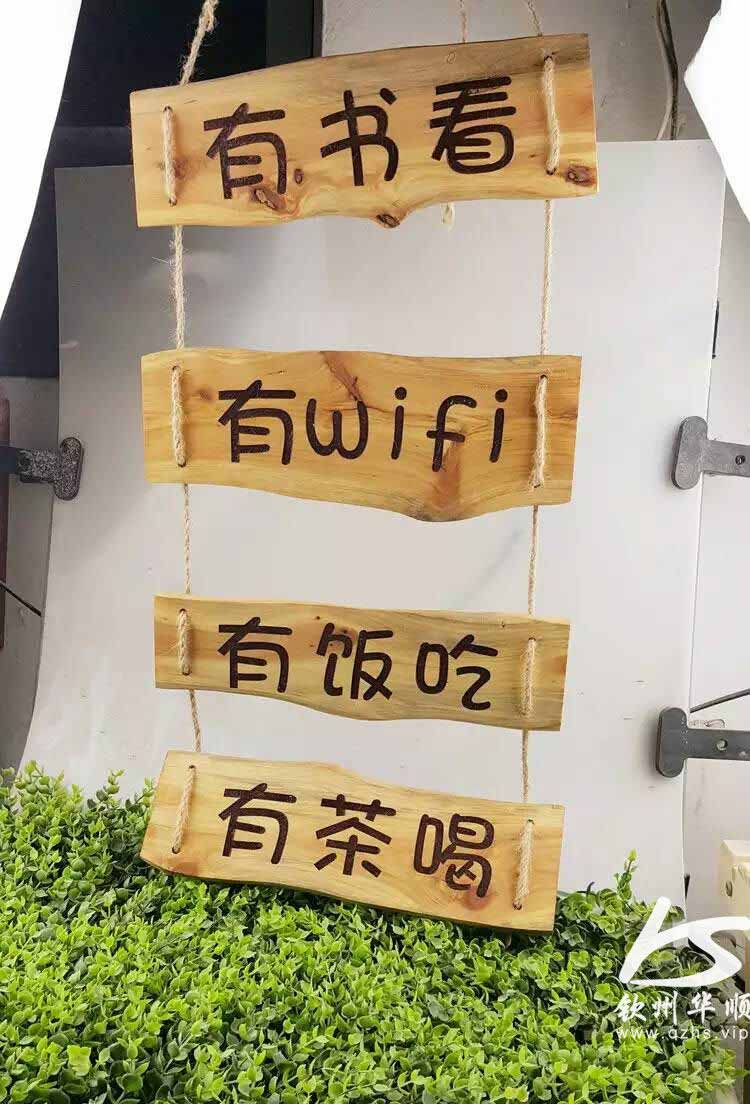 有书看
有wifi
有饭吃
有茶喝
钦州华顺
www.qzhs.vip